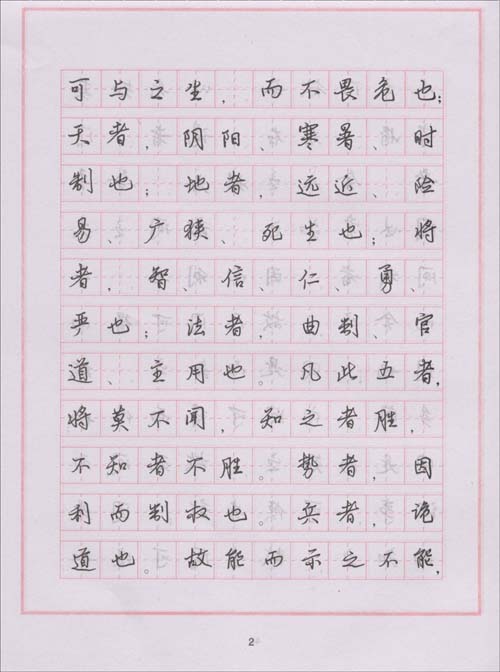 可与之生，而不畏危也；
天者，阴阳、寒暑、时
制也；地者，远近、险
易、广狭、死生也；将
者，智、信、仁、勇、
严也；法者，曲制、官
道、主用也。凡此五者，
将莫不闻，知之者胜，
不知者不胜。势者，因
利而制权也。兵者，诡
道也。故能而示之不能，
2